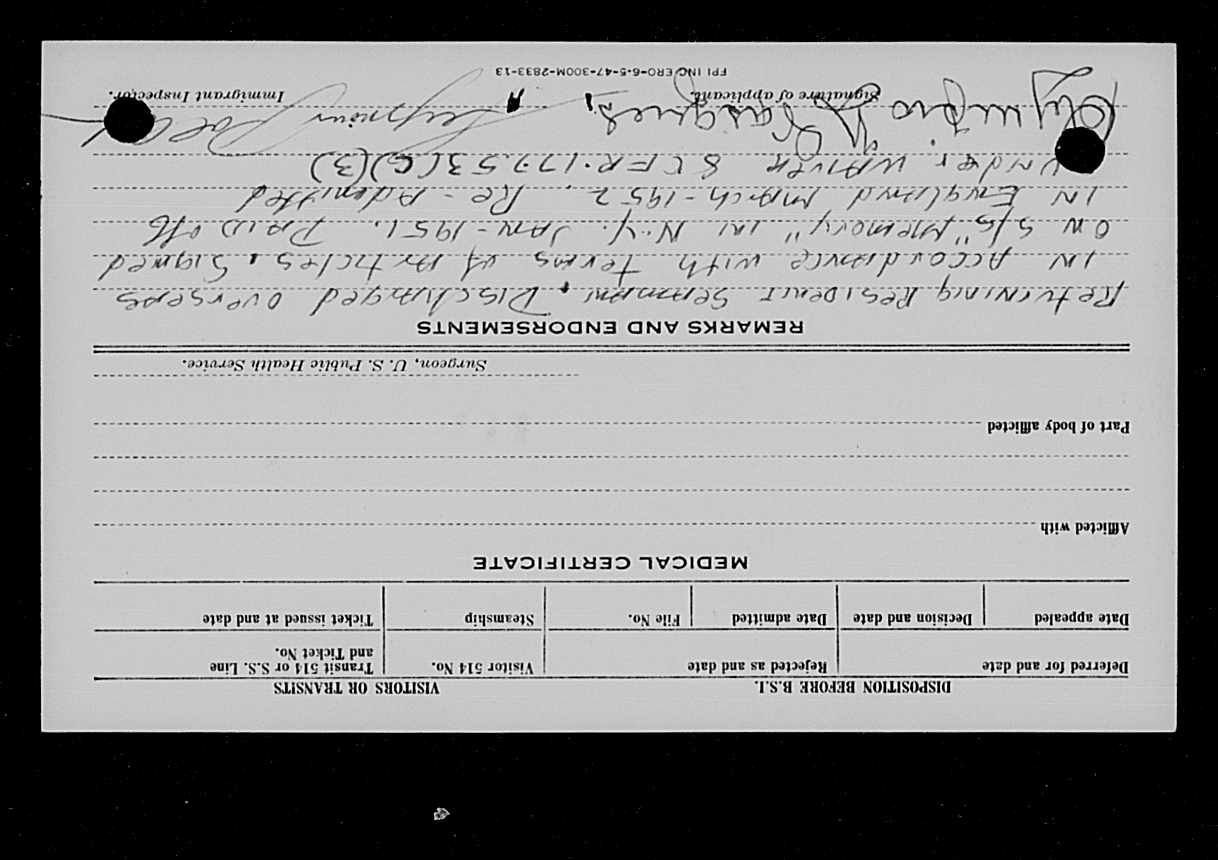 DISPOSITION BEFORE B.S.I. VISITORS OR TRANSITS
Deferred for and date Rejected as and date Visitor 514 No. Transit 514 or S.S. Line and Ticket No.
Date appealed Decision and date Date admitted File No. Steamship Ticket issued at and date
MEDICAL CERTIFICATE
Afflicted with
Part of body afflicted
Surgeon, U. S. Public Health Service.
REMARKS AND ENDORSEMENTS
Returning Resident Seaman. Discharged overseas
IN Accordance with terms of Articles. Signed
ON S/S "Memory" IN N.Y. JAN-1951. PAID Off
IN ENGLAND MARCH-1952. Re-Admitted
Under WAIVER 8 CFR. 175.53(C)(3)
Vasques
Signature of applicant. Immigrant Inspector.
FPI INC ERO-6-5-47-300M-2833-13